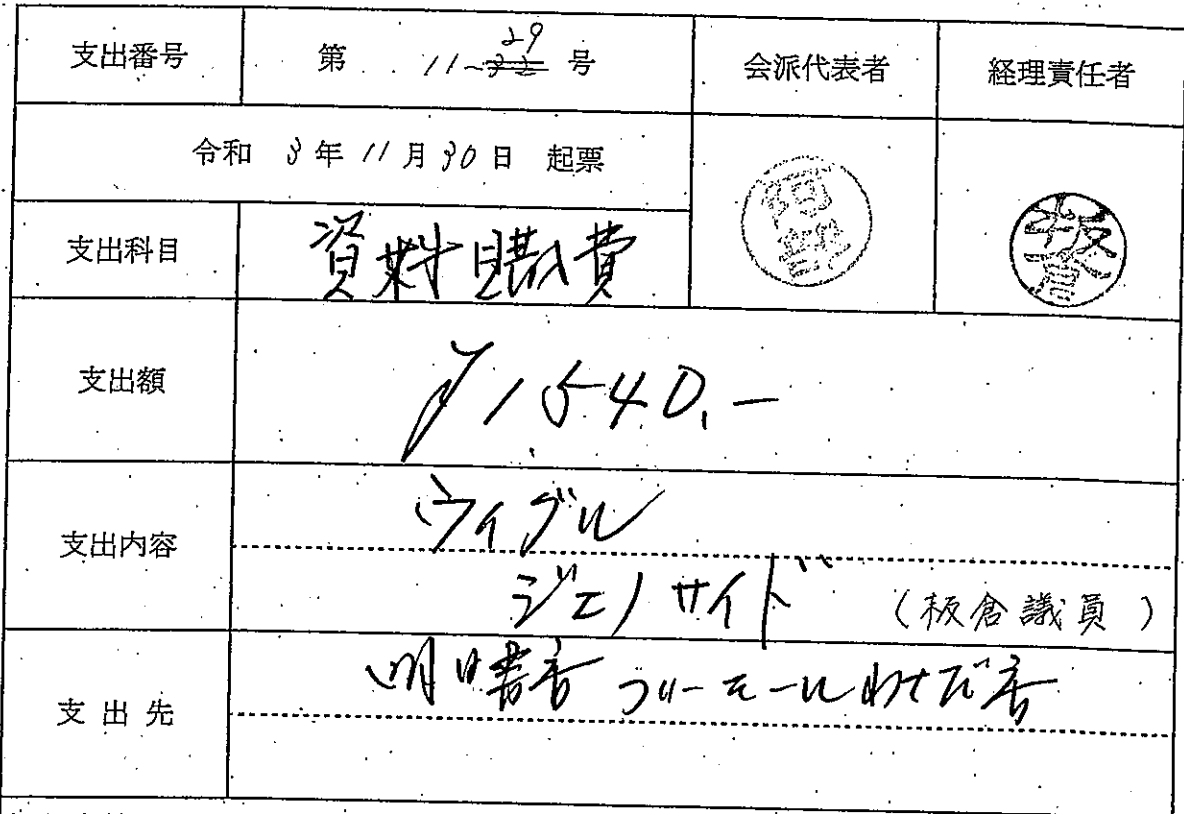 支出番号 第 11~29 号 会派代表者 経理責任者
令和 3年 11月30日 起票
阿部
板倉
支出科目 資料購入費
支出額 ¥1540.-
支出内容 ウイグル
ジェノサイド (板倉議員)
支出先 明日香 フリーモールわせだ店